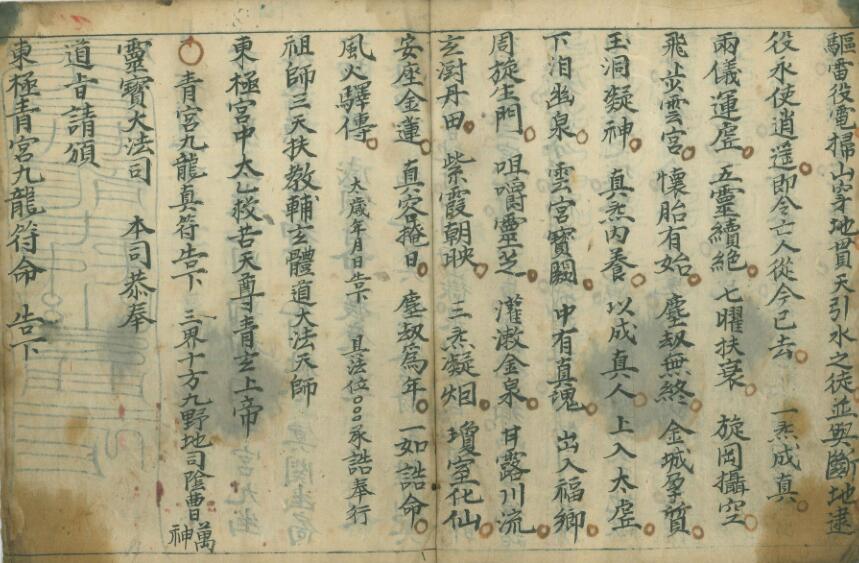 驅雷役電掃山穿地貫天引水之徒並與斷地逮
役永使逍遥即今亡人從今已去 一炁成真
兩儀運虚 五靈續絶 七曜扶衰 旋岡攝空
飛步雲宫 懷胎有始 塵劫無終 金城孕質
玉洞凝神 真炁内養 以成真人 上入太虚
下泪幽泉 雲宫寳闕 中有真魂 出入福鄉
周旋生門 咀嚼靈芝 灌漱金泉 甘露川流
玄厨丹田 紫霞朝映 三炁凝烟 瓊室化仙
安座金蓮 真容掩日 塵刼爲年 一如誥命
風火驛傳 太歲年月日告下 具法位〇〇承誥奉行
祖師三天扶教輔玄體道大法天師
東極宫中太乙救苦天尊青玄上帝
青宫九龍真符告下 三界十方九野地司陰曹萬神
靈寳大法司 本司恭奉
道旨請頒
東極青宫九龍符命 告下